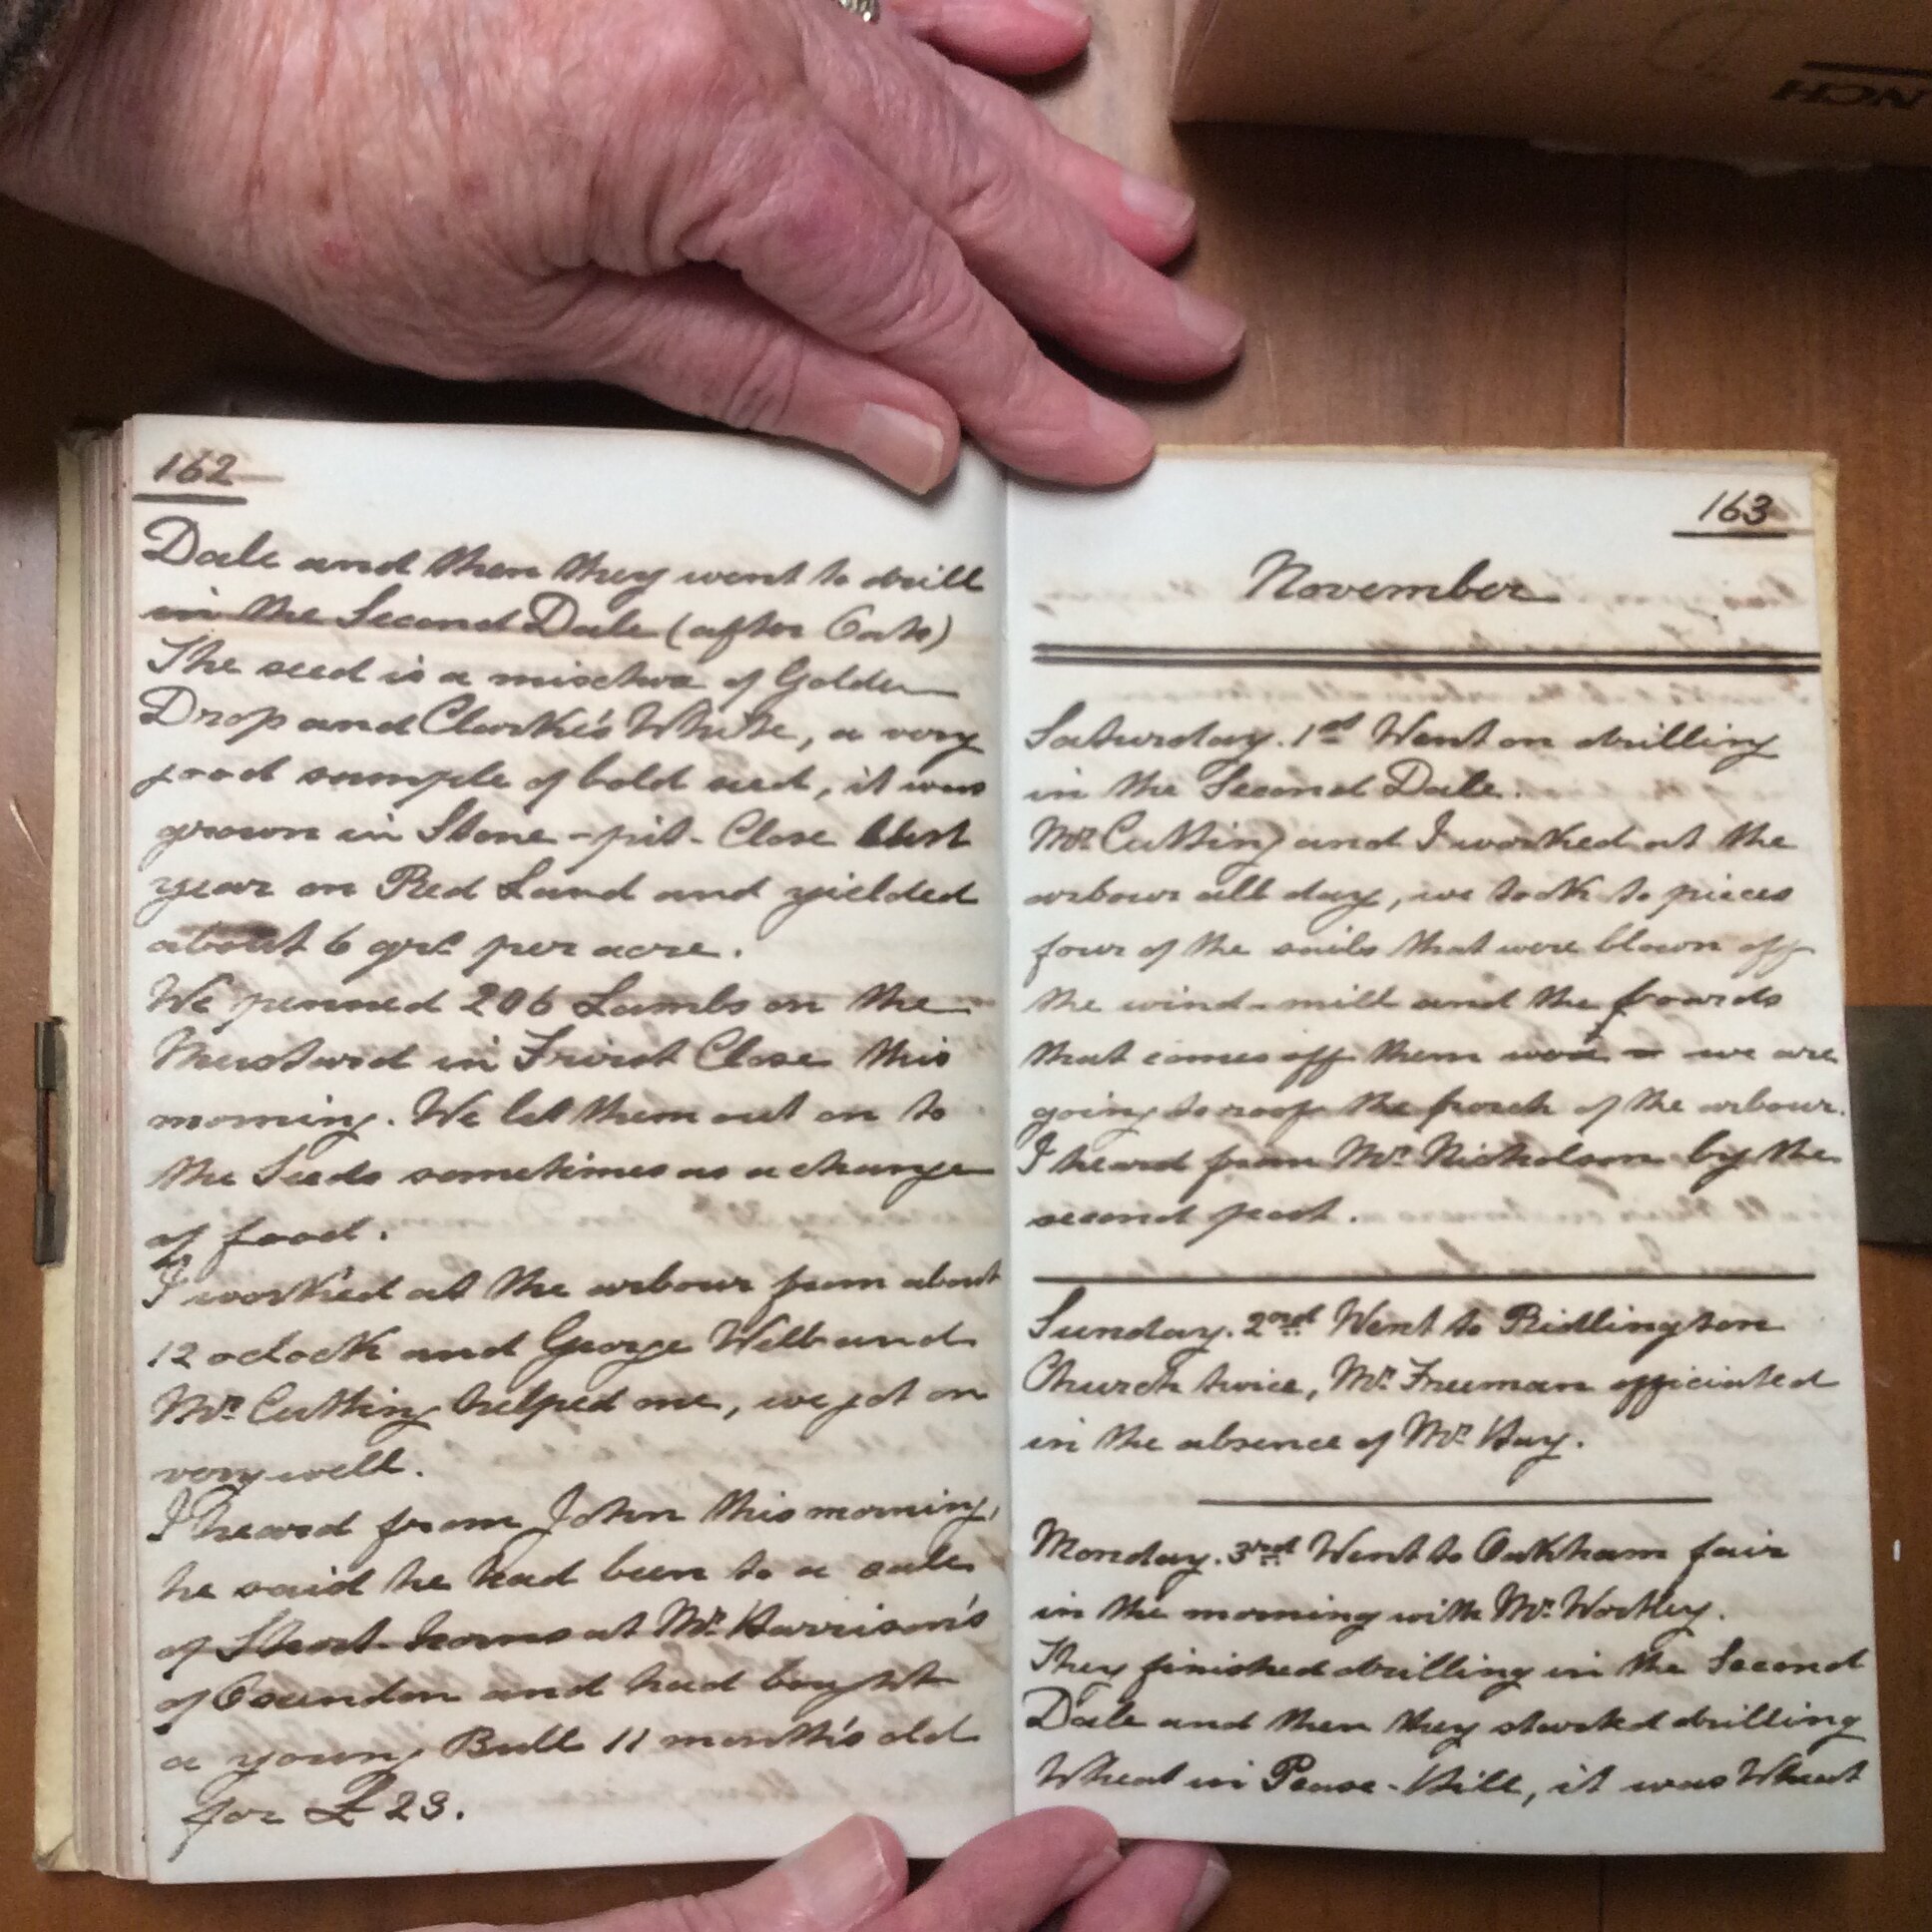 NCH
162
Dale and then they went to drill
in the Second Dale (after Oats)
The seed is a mixture of Golden
Drop and Clarke's White, a very
good sample of bold seed, it was
grown in Stone-pit-Close last
year on Red Land and yielded
about 6 qrs. per acre.
We penned 206 Lambs on the
Mustard in Friest Close this
morning. We let them out on to
the Seeds sometimes as a change
of food.
I worked at the arbour from about
12 oclock and George Well and
Mr. Cutting helped me, we got on
very well.
I heard from John this morning,
he said he had been to a sale
of Short-horns at Mr. Harrison's
of and had bought
a young Bull 11 month's old
for £23.
163
November
Saturday. 1st Went on drilling
in the Second Dale.
Mr. Cutting and I worked at the
arbour all day, we took to pieces
four of the sails that were blown off
the wind-mill and the boards
that comes off them we are
going to roof the porch of the arbour.
I heard from Mr. Nicholson by the
second post.
Sunday. 2nd Went to Ridlington
Church twice, Mr. Freeman officiated
in the absence of Mr. Hay.
Monday. 3rd Went to Oakham fair
in the morning with Mr. Wortley.
They finished drilling in the Second
Dale and then they started drilling
Wheat in Pease-Hill, it was Wheat